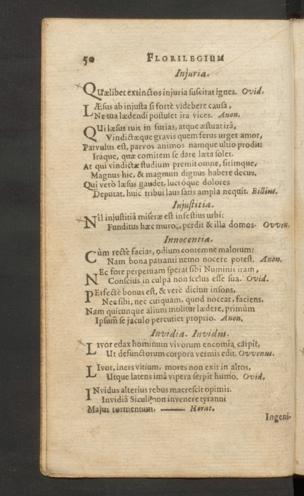 50 FLORILEGIUM
Injuria.
QUælibet extinctos injuria suscitat ignes. Ovid.
LÆsus ab injusta si fortè videbere causa,
Ne tua lædendi postulet ira vices. Anon.
QUi læsus ruit in furias, atque æstuat irâ,
Vindictæque gravis quem ferus urget amor,
Parvulus est, parvos animos namque ultio prodit
Iraque, quæ comitem se dare læta solet.
At qui vindictæ studium premit omne, feritque,
Magnus hic, & magnum dignus habere decus.
Qui verò læsus gaudet, luctúque dolores
Deputat, huic tribui laus satis ampla nequit. Billius.
Injustitia.
NIl injustitiâ miseræ est infestius urbi:
Funditus hæc muros, perdit & illa domos. Owen.
Innocentia.
CUm rectè facias, odium contemne malorum:
Nam bona patranti nemo nocere potest. Anon.
NEc fore perpetuam sperat sibi Numinis iram,
Conscius in culpa non scelus esse sua. Ovid.
PErfectè bonus est, & verè dicitur insons,
Nec sibi, nec cuiquam, quod noceat, faciens.
Nam quicunque alium molitur lædere, primùm
Ipsum se jaculo percutiet proprio. Anon.
Invidia. Invidus.
LIvor edax hominum vivorum encomia carpit,
Ut defunctorum corpora vermis edit. Owenus.
LIvor, iners vitium, mores non exit in altos,
Utque latens imâ vipera serpit humo. Ovid.
INvidus alterius rebus macrescit opimis.
Invidiâ Siculi non invenere tyranni
Majus tormentum. —— Horat.
Ingeni-